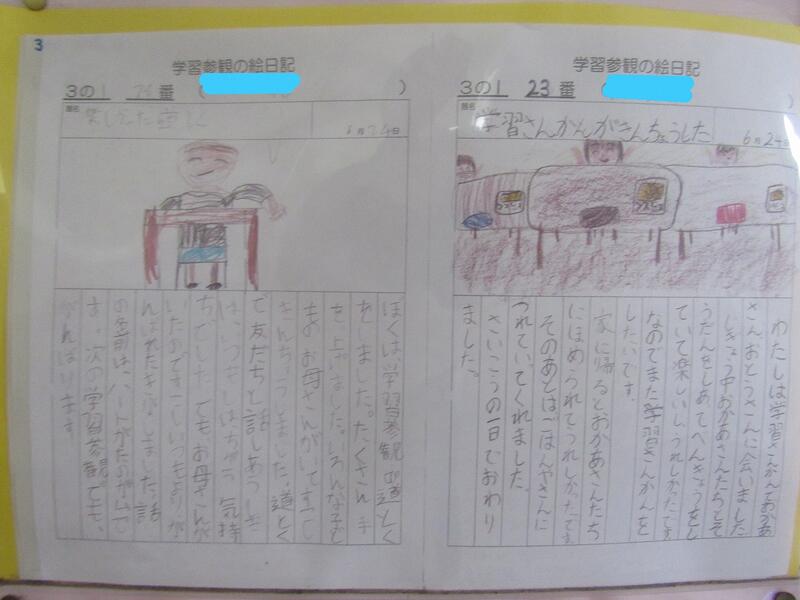 3
学習参観の絵日記
3の1 24番 ( )
題名
楽しかった道とく
6月24日
ぼくは学習参観で道とく
をしました。たくさん手
を上げました。いろんな子ど
ものお母さんがいて
きんちょうしました。道とく
で友だちと話しあうとき
は、いつもとはちがう気持
ちでした。でもお母さんが
いたのでいつもよりが
んばれた気がしました。話
の名前は、ハートがたのガムで
す。次の学習参観でも、
がんばります
学習参観の絵日記
3の1 23番 ( )
題名
学習さんかんがきんちょうした
6月24日
わたしは学習さんかんでおかあ
さんおとうさんに会いました
じぎょう中おかあさんたちとそ
うだんをしあてべんきょうをし
ていて楽しいしうれしかったです
なのでまた学習さんかんを
したいです。
家に帰るとおかあさんたち
にほめられてうれしかったです
そのあとはごはんやさんに
つれていてくれました。
さいこうの一日でおわり
ました。